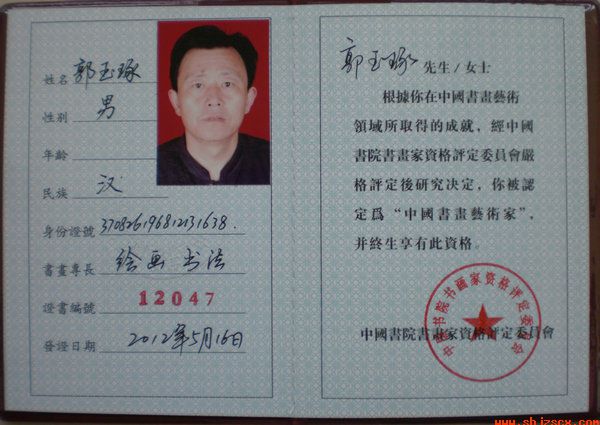 姓名 郭玉琢
性别 男
年齡
民族 汉
身份證號 370826196812131638.
書畫專長 绘画 书法
證書編號 12047
發證日期 2012年5月16日
郭玉琢 先生/女士
根據你在中國書畫藝術
領域所取得的成就，經中國
書院書畫家資格評定委員會嚴
格評定後研究决定，你被認
定爲“中國書畫藝術家”，
并終生享有此資格。
中國書院書畫家資格評定委員會
中国书院书画家资格评定委员会